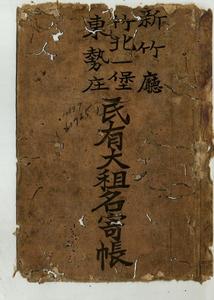 新竹廳
竹北一堡
東勢庄
民有大租名寄帳